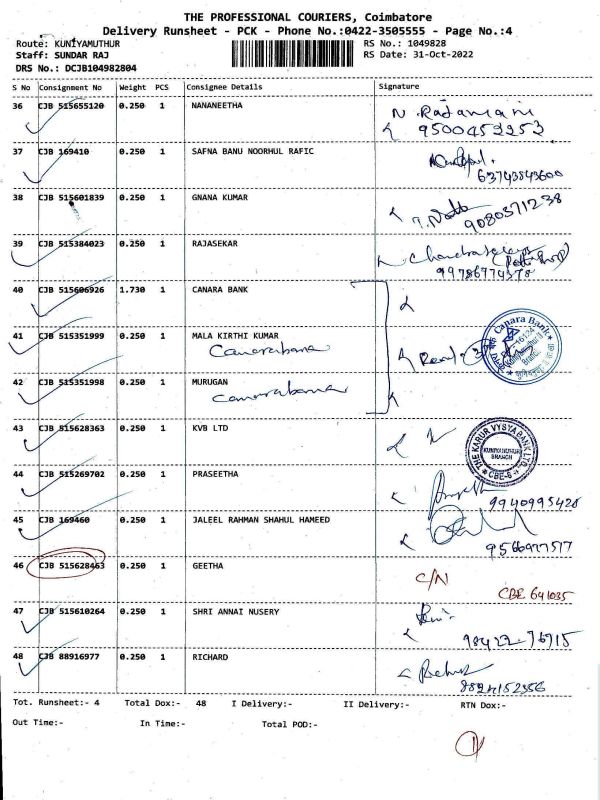 THE PROFESSIONAL COURIERS, Coimbatore
Delivery Runsheet - PCK - Phone No.:0422-3505555 - Page No.:4
Route: KUNIYAMUTHUR
RS No.: 1049828
Staff: SUNDAR RAJ
RS Date: 31-Oct-2022
DRS No.: DCJB104982804
S No Consignment No Weight PCS Consignee Details Signature
36 CJB 515655120 0.250 1 NANANEETHA
9500453253
37 CJB 169410 0.250 1 SAFNA BANU NOORHUL RAFIC
63743843600
38 CJB 515601839 0.250 1 GNANA KUMAR
9080371238
39 CJB 515384023 0.250 1 RAJASEKAR
40 CJB 515606926 1.730 1 CANARA BANK
Canara Bank
41 CJB 515351999 0.250 1 MALA KIRTHI KUMAR
42 CJB 515351998 0.250 1 MURUGAN
43 CJB 515628363 0.250 1 KVB LTD
THE KARUR VYSYA BANK LTD.
KUNIYAMUTHUR
BRANCH
CBE-8
44 CJB 515269702 0.250 1 PRASEETHA
9940995428
45 CJB 169460 0.250 1 JALEEL RAHMAN SHAHUL HAMEED
9566977577
46 CJB 515628463 0.250 1 GEETHA C/N
CBE 641035
47 CJB 515610264 0.250 1 SHRI ANNAI NUSERY
98422-76915
48 CJB 88916977 0.250 1 RICHARD
Tot. Runsheet:- 4 Total Dox:- 48 I Delivery:- II Delivery:- RTN Dox:-
Out Time:- In Time:- Total POD:-